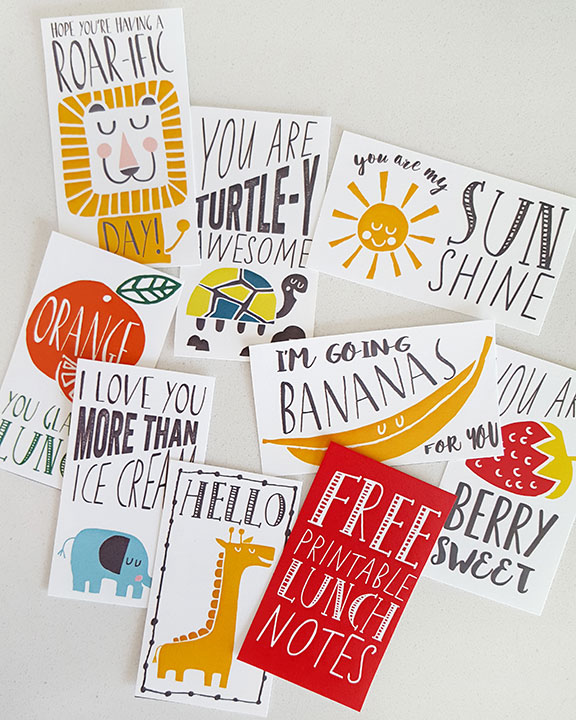 HOPE YOU'RE HAVING A
ROAR-IFIC
DAY!
YOU ARE
TURTLE-Y
AWESOME
you are my
SUN
SHINE
ORANGE
YOU
I'M GOING
BANANAS
FOR YOU
YOU
BERRY
SWEET
I LOVE YOU
MORE THAN
ICE CREAM
HELLO
FREE
PRINTABLE
LUNCH
NOTES